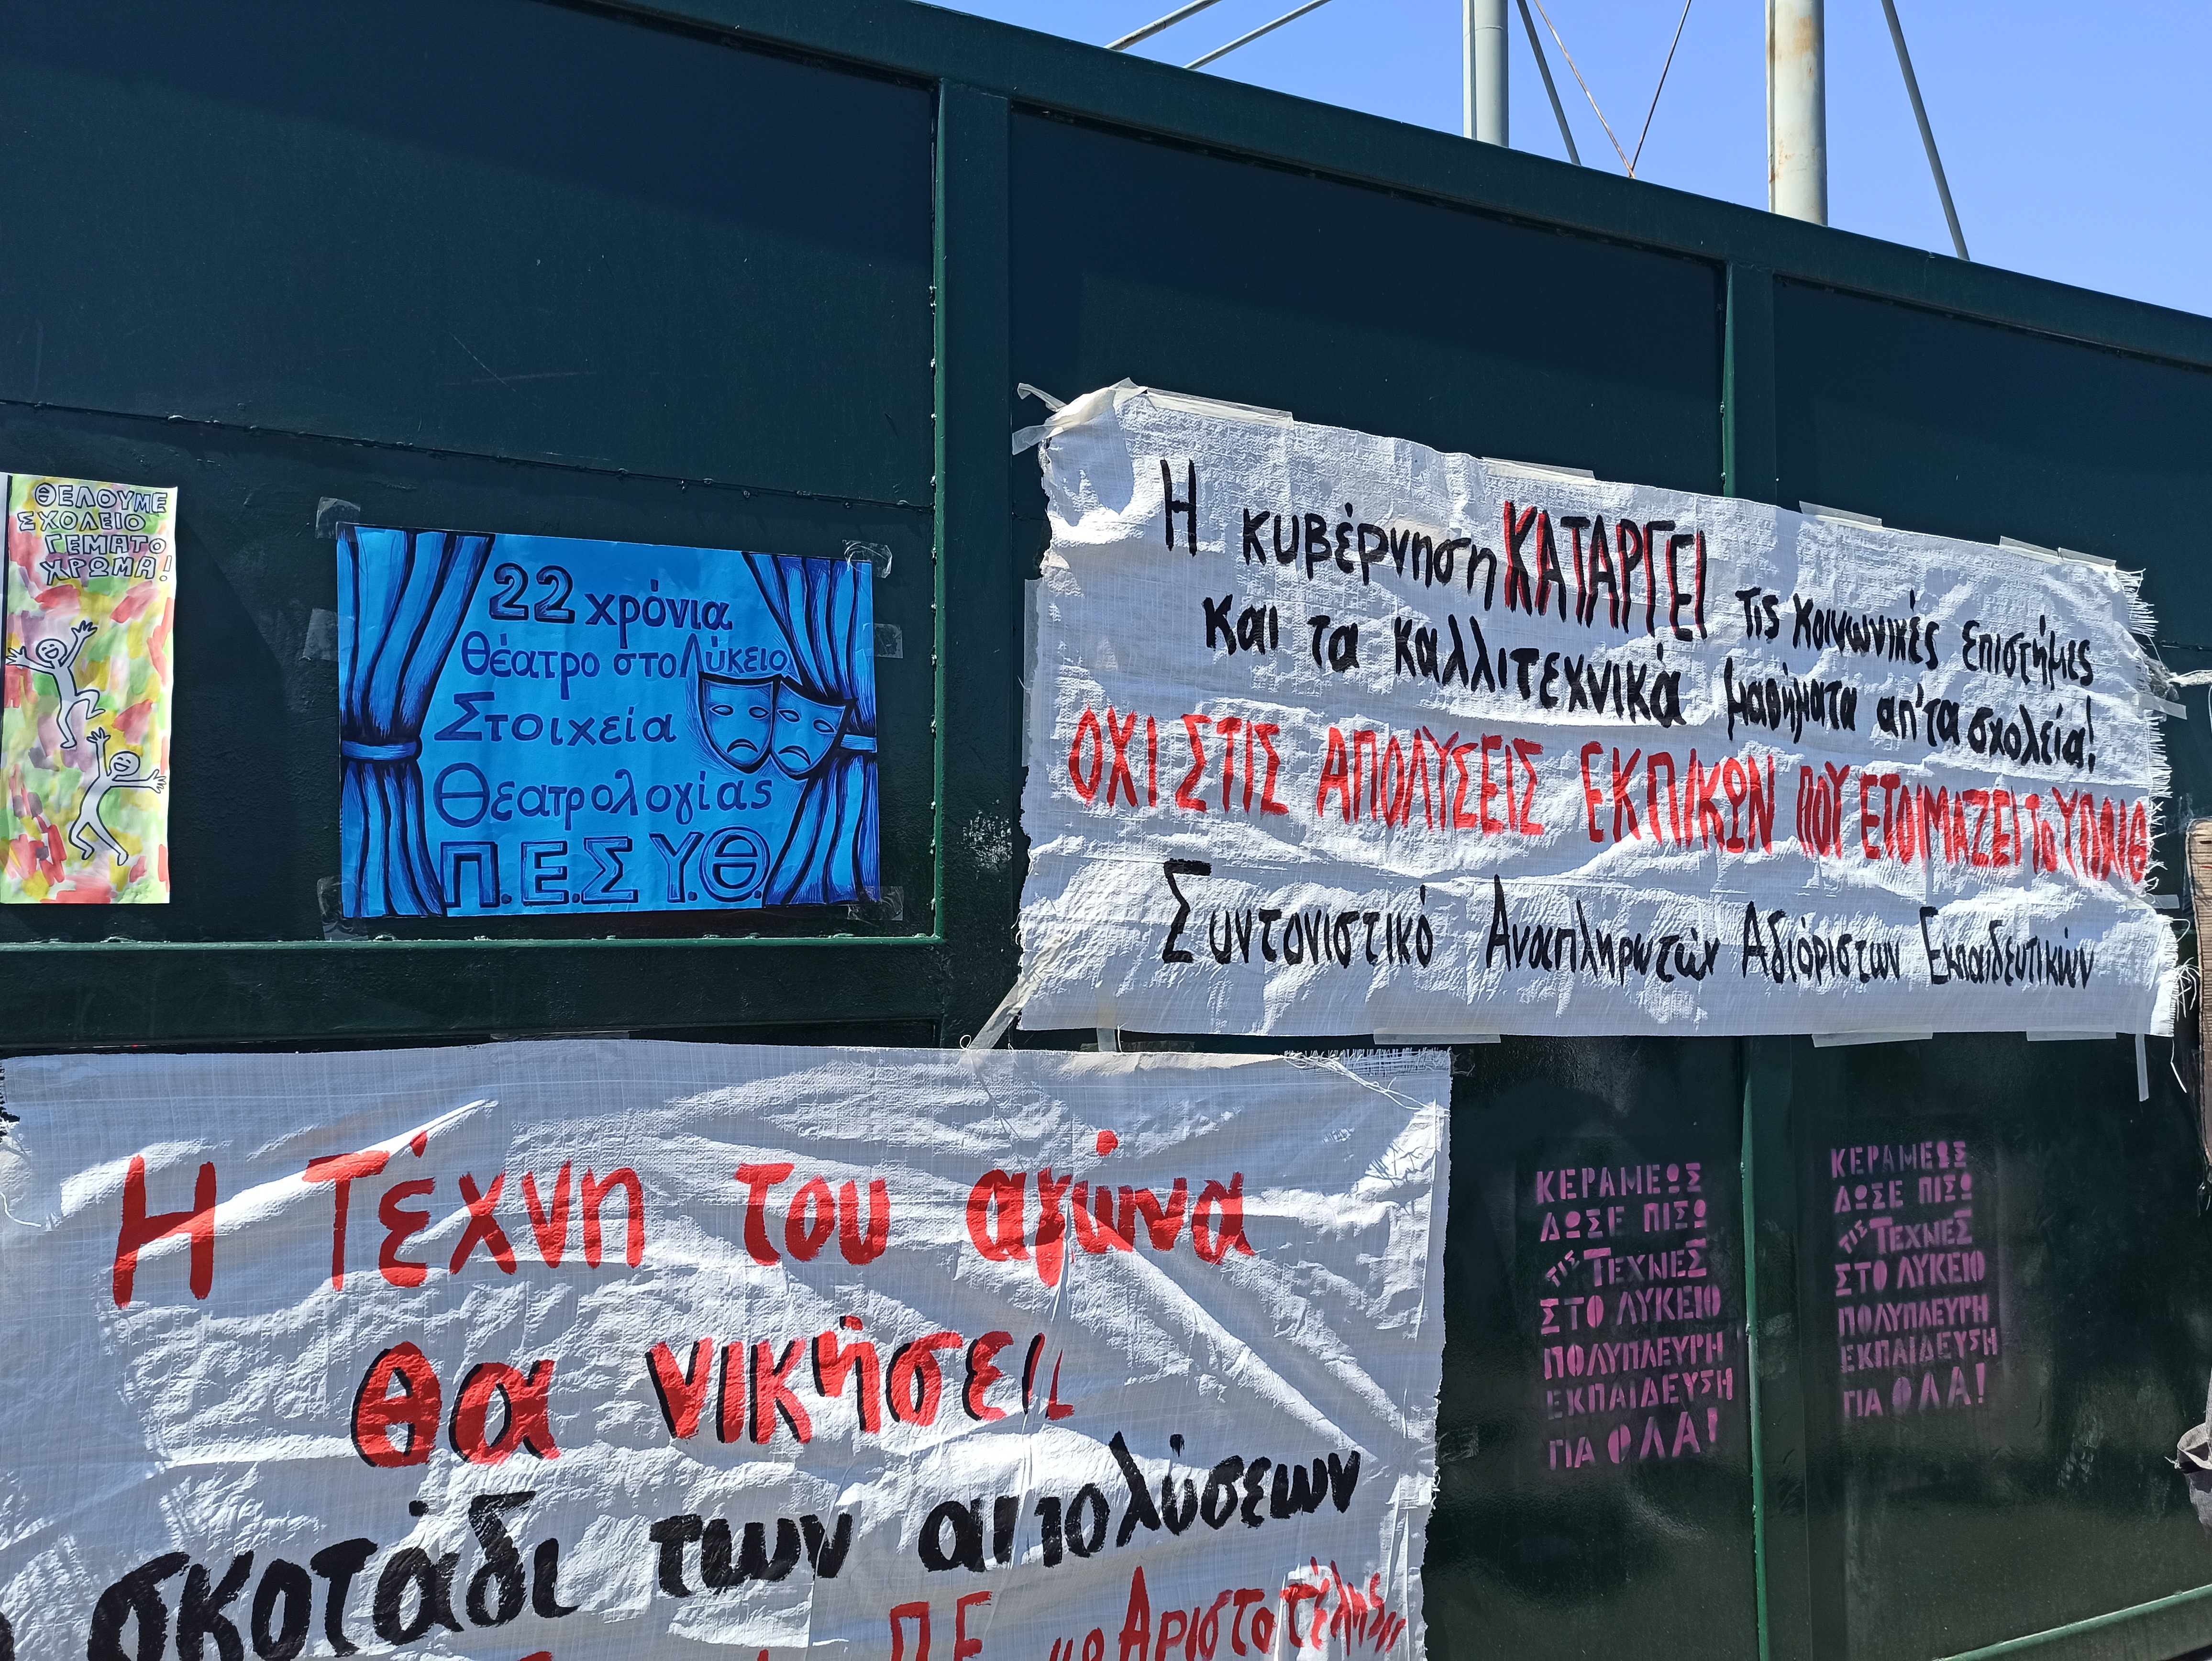 ΘΕΛΟΥΜΕ
ΣΧΟΛΕΙΟ
ΓΕΜΑΤΟ
ΧΡΩΜΑ!
22 χρόνια
Θέατρο στο Λύκειο
Στοιχεία
Θεατρολογίας
Π.Ε.ΣΥ.Θ.
Η κυβέρνηση ΚΑΤΑΡΓΕΙ τις κοινωνικές επιστήμες
και τα καλλιτεχνικά μαθήματα απ' τα σχολεία!
ΟΧΙ ΣΤΙΣ ΑΠΟΛΥΣΕΙΣ ΕΚΠ/ΚΩΝ ΠΟΥ ΕΤΟΙΜΑΖΕΙ ΤΟ ΥΠΑΙΘ
Συντονιστικό Αναπληρωτών Αδιόριστων Εκπαιδευτικών
Η Τέχνη του αγώνα
θα νικήσει
σκοτάδι των απολύσεων
Π.Ε. "ο Αριστοτέλης"
ΚΕΡΑΜΕΩΣ
ΔΩΣΕ ΠΙΣΩ
ΤΙΣ ΤΕΧΝΕΣ
ΣΤΟ ΛΥΚΕΙΟ
ΠΟΛΥΠΛΕΥΡΗ
ΕΚΠΑΙΔΕΥΣΗ
ΓΙΑ ΟΛΑ!
ΚΕΡΑΜΕΩΣ
ΔΩΣΕ ΠΙΣΩ
ΤΙΣ ΤΕΧΝΕΣ
ΣΤΟ ΛΥΚΕΙΟ
ΠΟΛΥΠΛΕΥΡΗ
ΕΚΠΑΙΔΕΥΣΗ
ΓΙΑ ΟΛΑ!